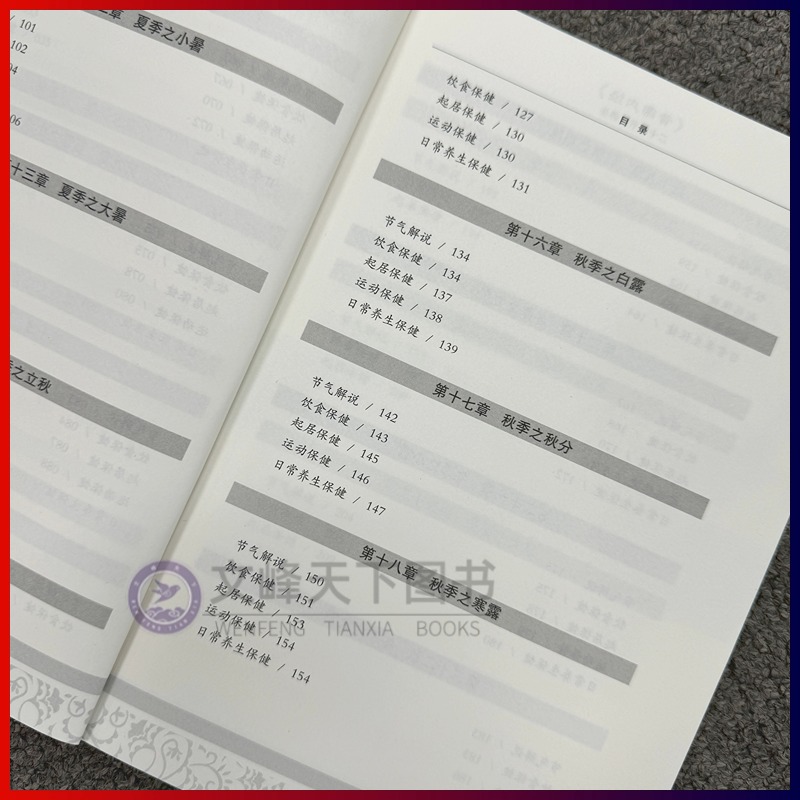 / 101
章 夏季之小暑
102
04
06
十三章 夏季之大暑
之立秋
目 录
饮食保健 / 127
起居保健 / 130
运动保健 / 130
日常养生保健 / 131
第十六章 秋季之白露
节气解说 / 134
饮食保健 / 134
起居保健 / 137
运动保健 / 138
日常养生保健 / 139
第十七章 秋季之秋分
节气解说 / 142
饮食保健 / 143
起居保健 / 145
运动保健 / 146
日常养生保健 / 147
第十八章 秋季之寒露
节气解说 / 150
饮食保健 / 151
起居保健 / 153
运动保健 / 154
日常养生保健 / 154
文峰天下图书
WENFENG TIANXIA BOOKS